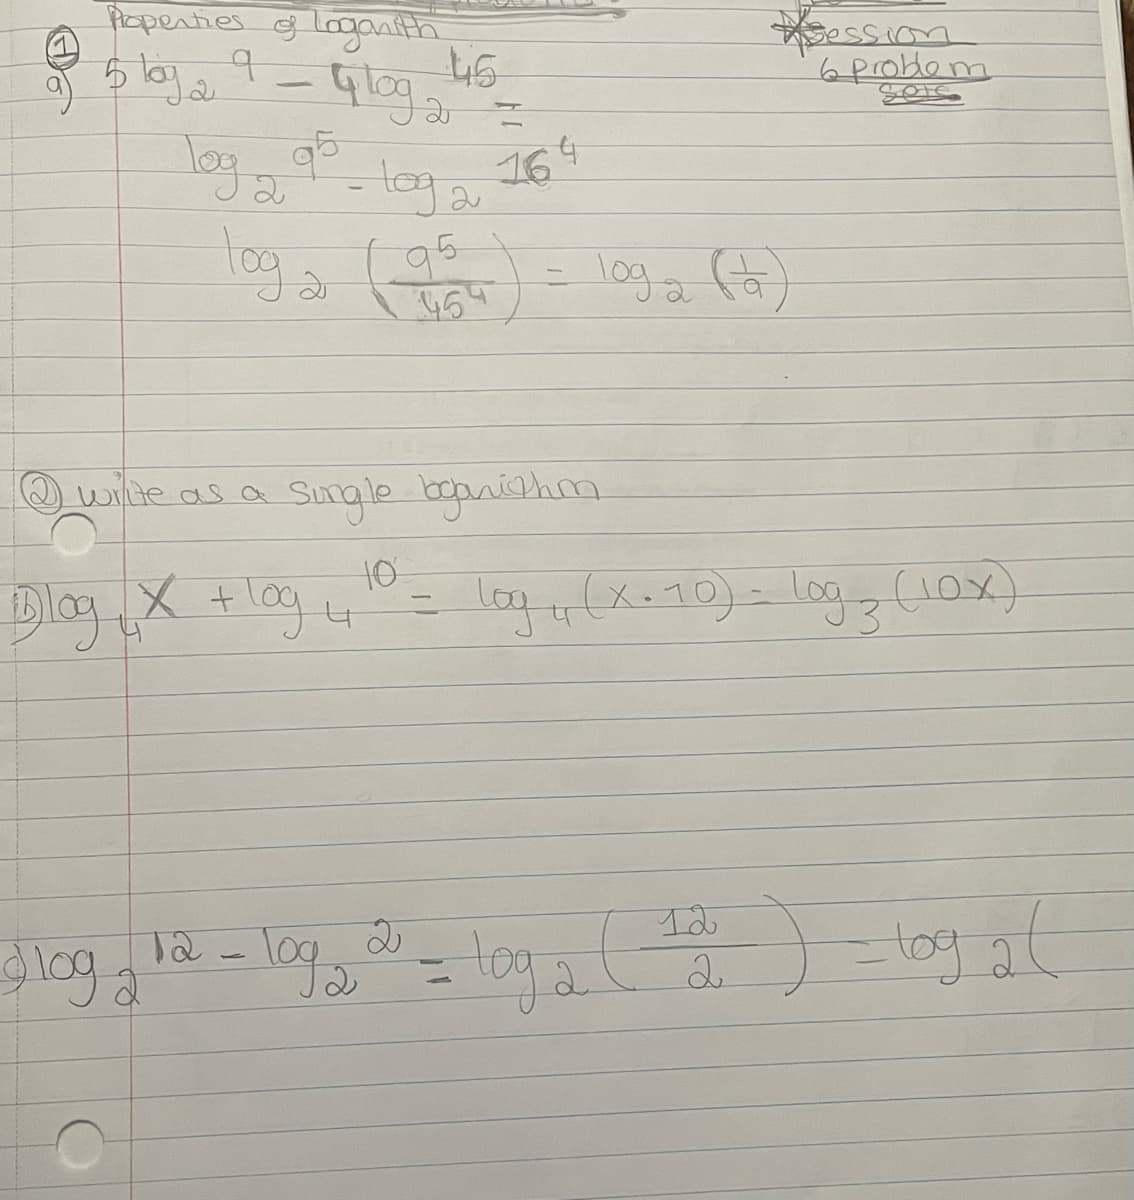 Properties of Logarith
*Session
6 problem
sets
① a) 5 log₂ 9 - 4 log₂ 45 =
log₂ 9⁵ - log₂ 16⁴
log₂ (9⁵/45⁴) = log₂ (1/9)
② write as a single logarithm
b) log₄ x + log₄ 10 = log₄ (x · 10) = log₃ (10x)
log₂ 12 - log₂ 2 = log₂ (12/2) = log₂ (